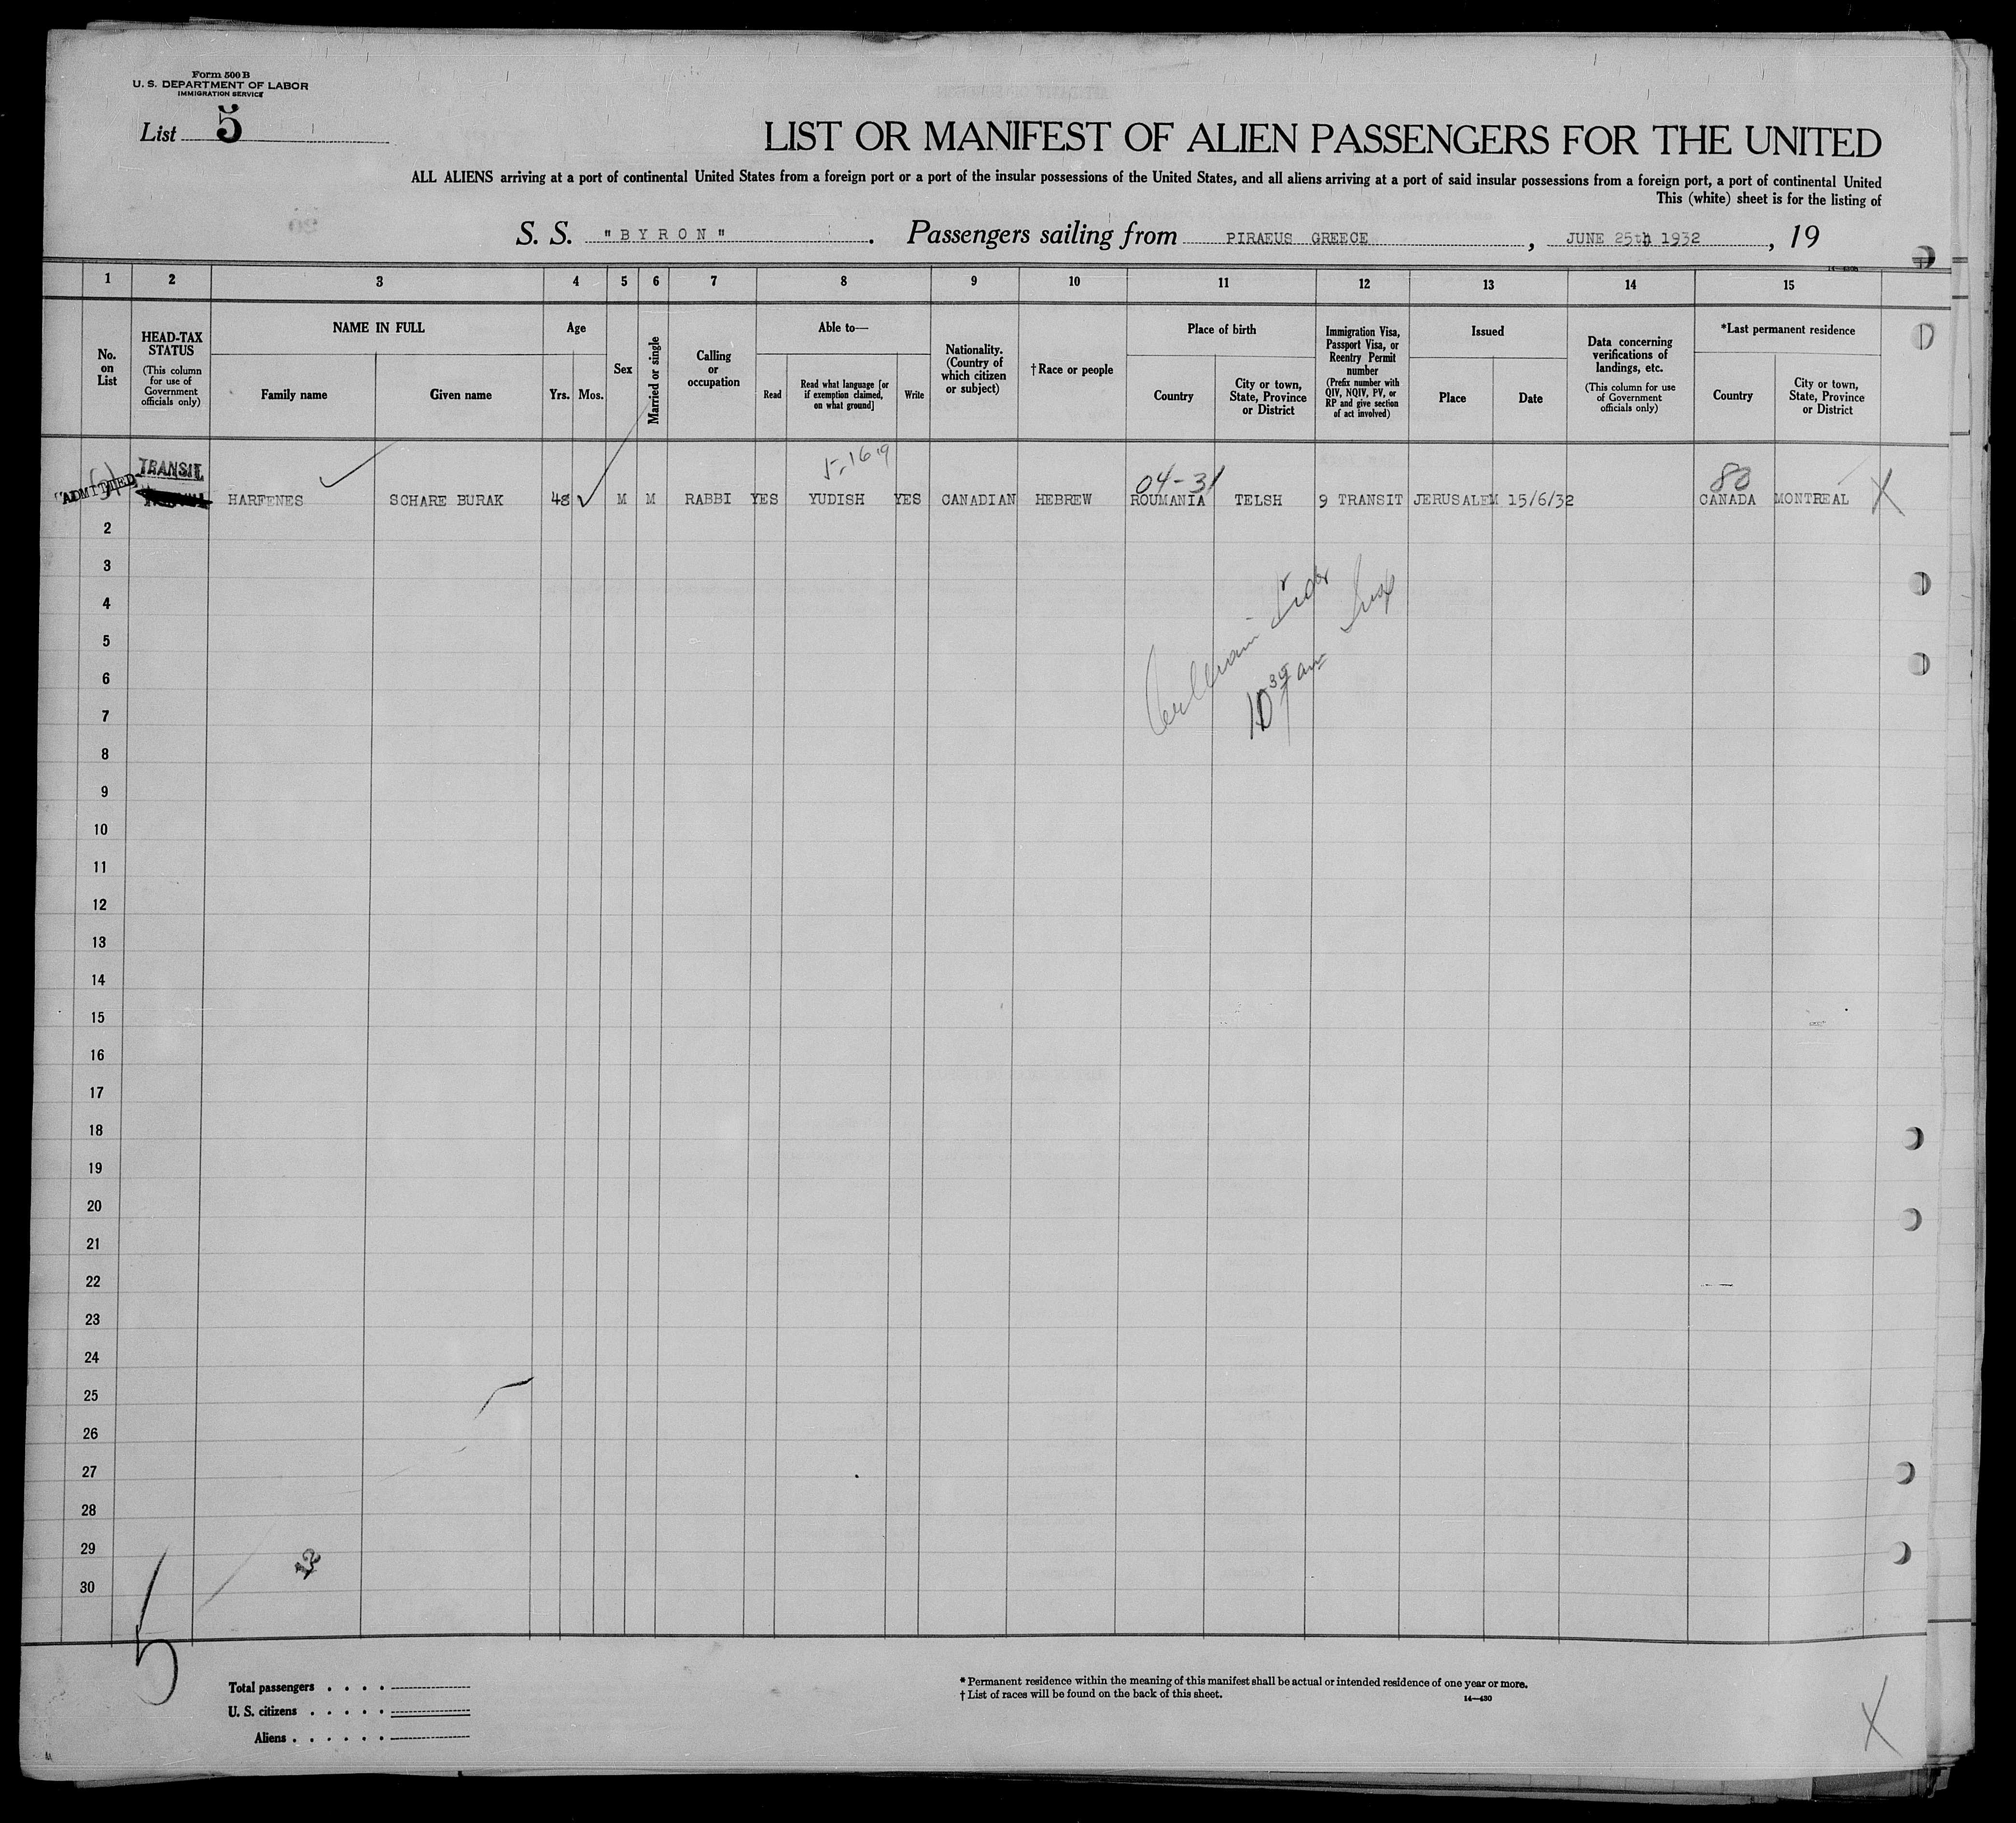 Form 500 B
U. S. DEPARTMENT OF LABOR
IMMIGRATION SERVICE
List 5
LIST OR MANIFEST OF ALIEN PASSENGERS FOR THE UNITED
ALL ALIENS arriving at a port of continental United States from a foreign port or a port of the insular possessions of the United States, and all aliens arriving at a port of said insular possessions from a foreign port, a port of continental United
This (white) sheet is for the listing of
S. S. "BYRON". Passengers sailing from PIRAEUS GREECE, JUNE 25th 1932, 19
14—430B
1 2 3 4 5 6 7 8 9 10 11 12 13 14 15
No. on List
HEAD-TAX STATUS (This column for use of Government officials only)
NAME IN FULL
Family name
Given name
Age
Yrs. Mos.
Sex
Married or single
Calling or occupation
Able to—
Read
Read what language [or if exemption claimed, on what ground]
Write
Nationality. (Country of which citizen or subject)
†Race or people
Place of birth
Country
City or town, State, Province or District
Immigration Visa, Passport Visa, or Reentry Permit number (Prefix number with QIV, NQIV, PV, or RP and give section of act involved)
Issued
Place
Date
Data concerning verifications of landings, etc. (This column for use of Government officials only)
*Last permanent residence
Country
City or town, State, Province or District
TRANSIT 04-31 80
ADMITTED HARFENES SCHARE BURAK 48 M M RABBI YES YUDISH YES CANADIAN HEBREW ROUMANIA TELSH 9 TRANSIT JERUSALEM 15/6/32 CANADA MONTREAL X
2
3
4
5
6
10 30 am
7
8
9
10
11
12
13
14
15
16
17
18
19
20
21
22
23
24
25
26
27
28
29
30
5
Total passengers . . . .
U. S. citizens . . . . .
Aliens . . . . . .
* Permanent residence within the meaning of this manifest shall be actual or intended residence of one year or more.
† List of races will be found on the back of this sheet.
14—430
X